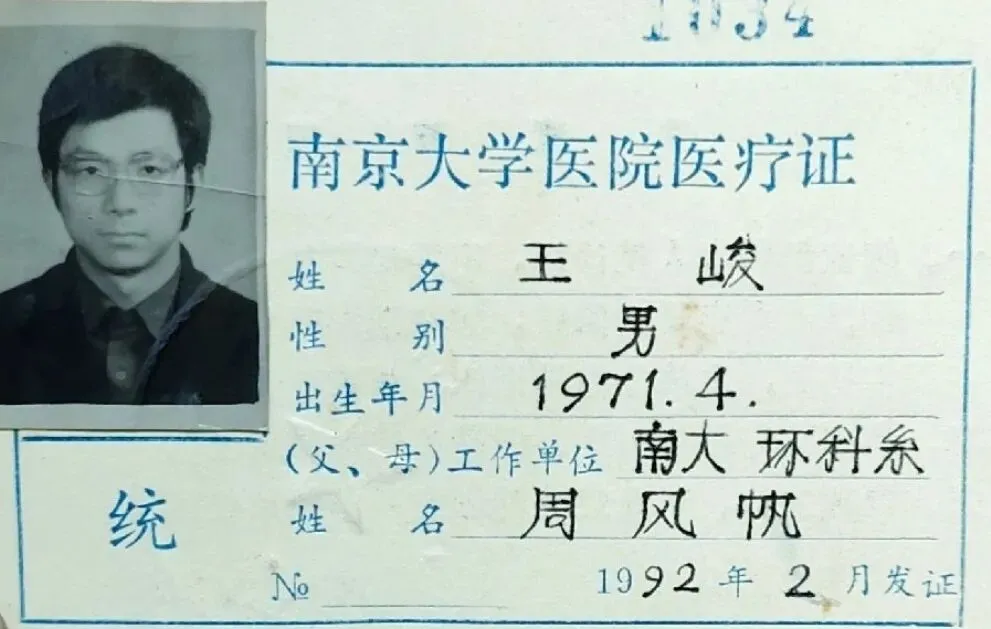 1034
南京大学医院医疗证
姓名 王峻
性别 男
出生年月 1971.4.
(父、母)工作单位 南大 环科系
姓名 周风帆
统
№ 1992年2月发证